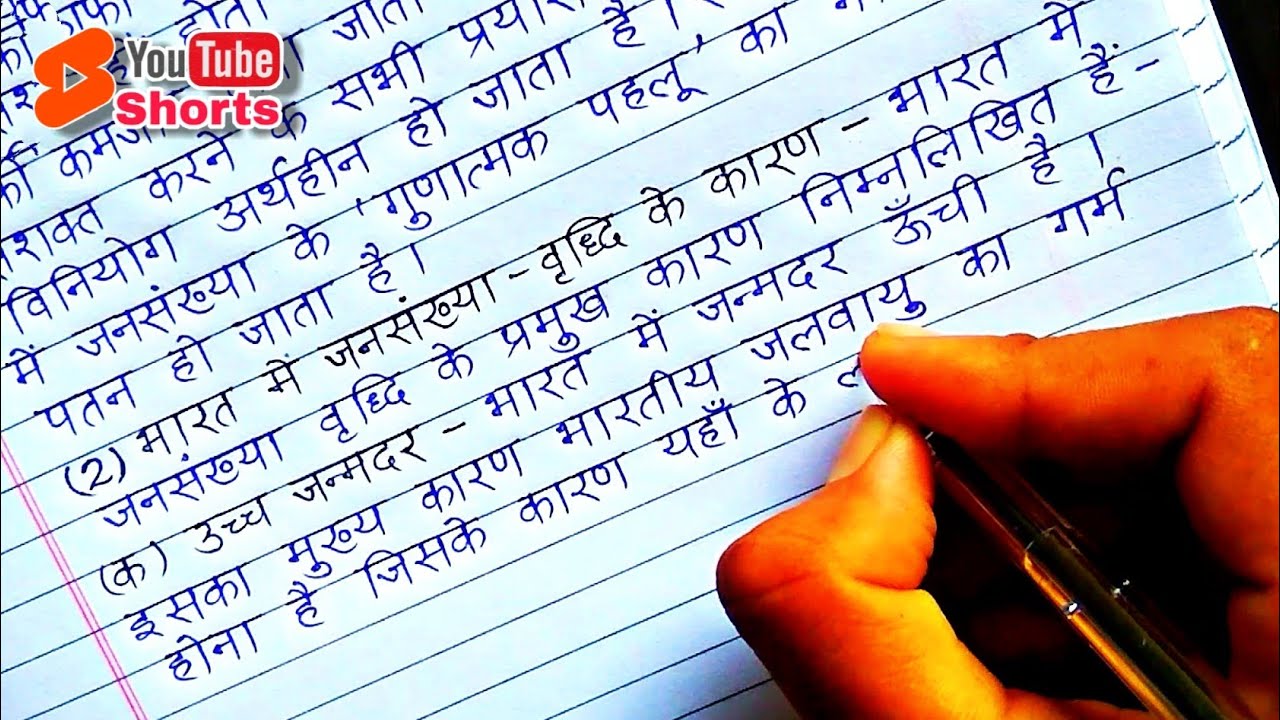 YouTube
Shorts
होता
जाता
के सभी प्रयास
सशक्त करने
विनियोग अर्थहीन हो जाता है।
में जनसंख्या के 'गुणात्मक पहलू' का
पतन हो जाता है।
(2) भारत में जनसंख्या-वृद्धि के कारण - भारत में
जनसंख्या वृद्धि के प्रमुख कारण निम्नलिखित हैं-
(क) उच्च जन्मदर - भारत में जन्मदर ऊँची है।
इसका मुख्य कारण भारतीय जलवायु का गर्म
होना है जिसके कारण यहाँ के